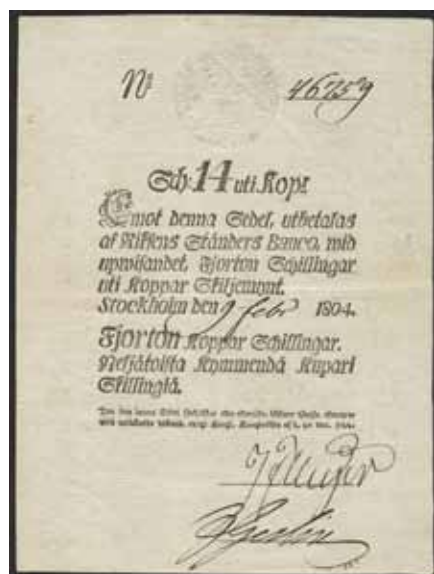 No 46759
Sch: 14 uti Kopr
Emot denna Sedel, utbetalas
af Riksens Ständers Banco, wid
upwisandet, Fjorton Schillingar
uti Koppar Skiljemynt.
Stockholm den 9 Febr 1804.
Fjorton Koppar Schillingar.
Neljätoista Kymmendä Kupari
Skillingiä.
Den som denna Sedel